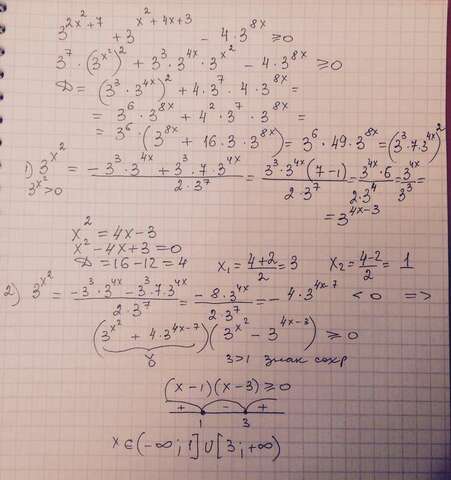 3^{2x²+7} + 3^{x²+4x+3} − 4·3^{8x} ≥ 0
3⁷·(3^{x²})² + 3³·3^{4x}·3^{x²} − 4·3^{8x} ≥ 0
D = (3³·3^{4x})² + 4·3⁷·4·3^{8x} =
= 3⁶·3^{8x} + 4²·3⁷·3^{8x} =
= 3⁶·(3^{8x} + 16·3·3^{8x}) = 3⁶·49·3^{8x} = (3³·7·3^{4x})²
1) 3^{x²} = (−3³·3^{4x} + 3³·7·3^{4x})/(2·3⁷) = (3³·3^{4x}(7−1))/(2·3⁷) = (3^{4x}·6)/(2·3⁴) = 3^{4x}/3³ =
3^{x²} > 0
= 3^{4x−3}
x² = 4x − 3
x² − 4x + 3 = 0
D = 16 − 12 = 4 x₁ = (4+2)/2 = 3 x₂ = (4−2)/2 = 1
2) 3^{x²} = (−3³·3^{4x} − 3³·7·3^{4x})/(2·3⁷) = (−8·3^{4x})/(2·3⁷) = −4·3^{4x−7} < 0 =>
(3^{x²} + 4·3^{4x−7})(3^{x²} − 3^{4x−3}) ≥ 0
3>1 знак сохр
(x−1)(x−3) ≥ 0
+ − +
1 3
x ∈ (−∞; 1] ∪ [3; +∞)